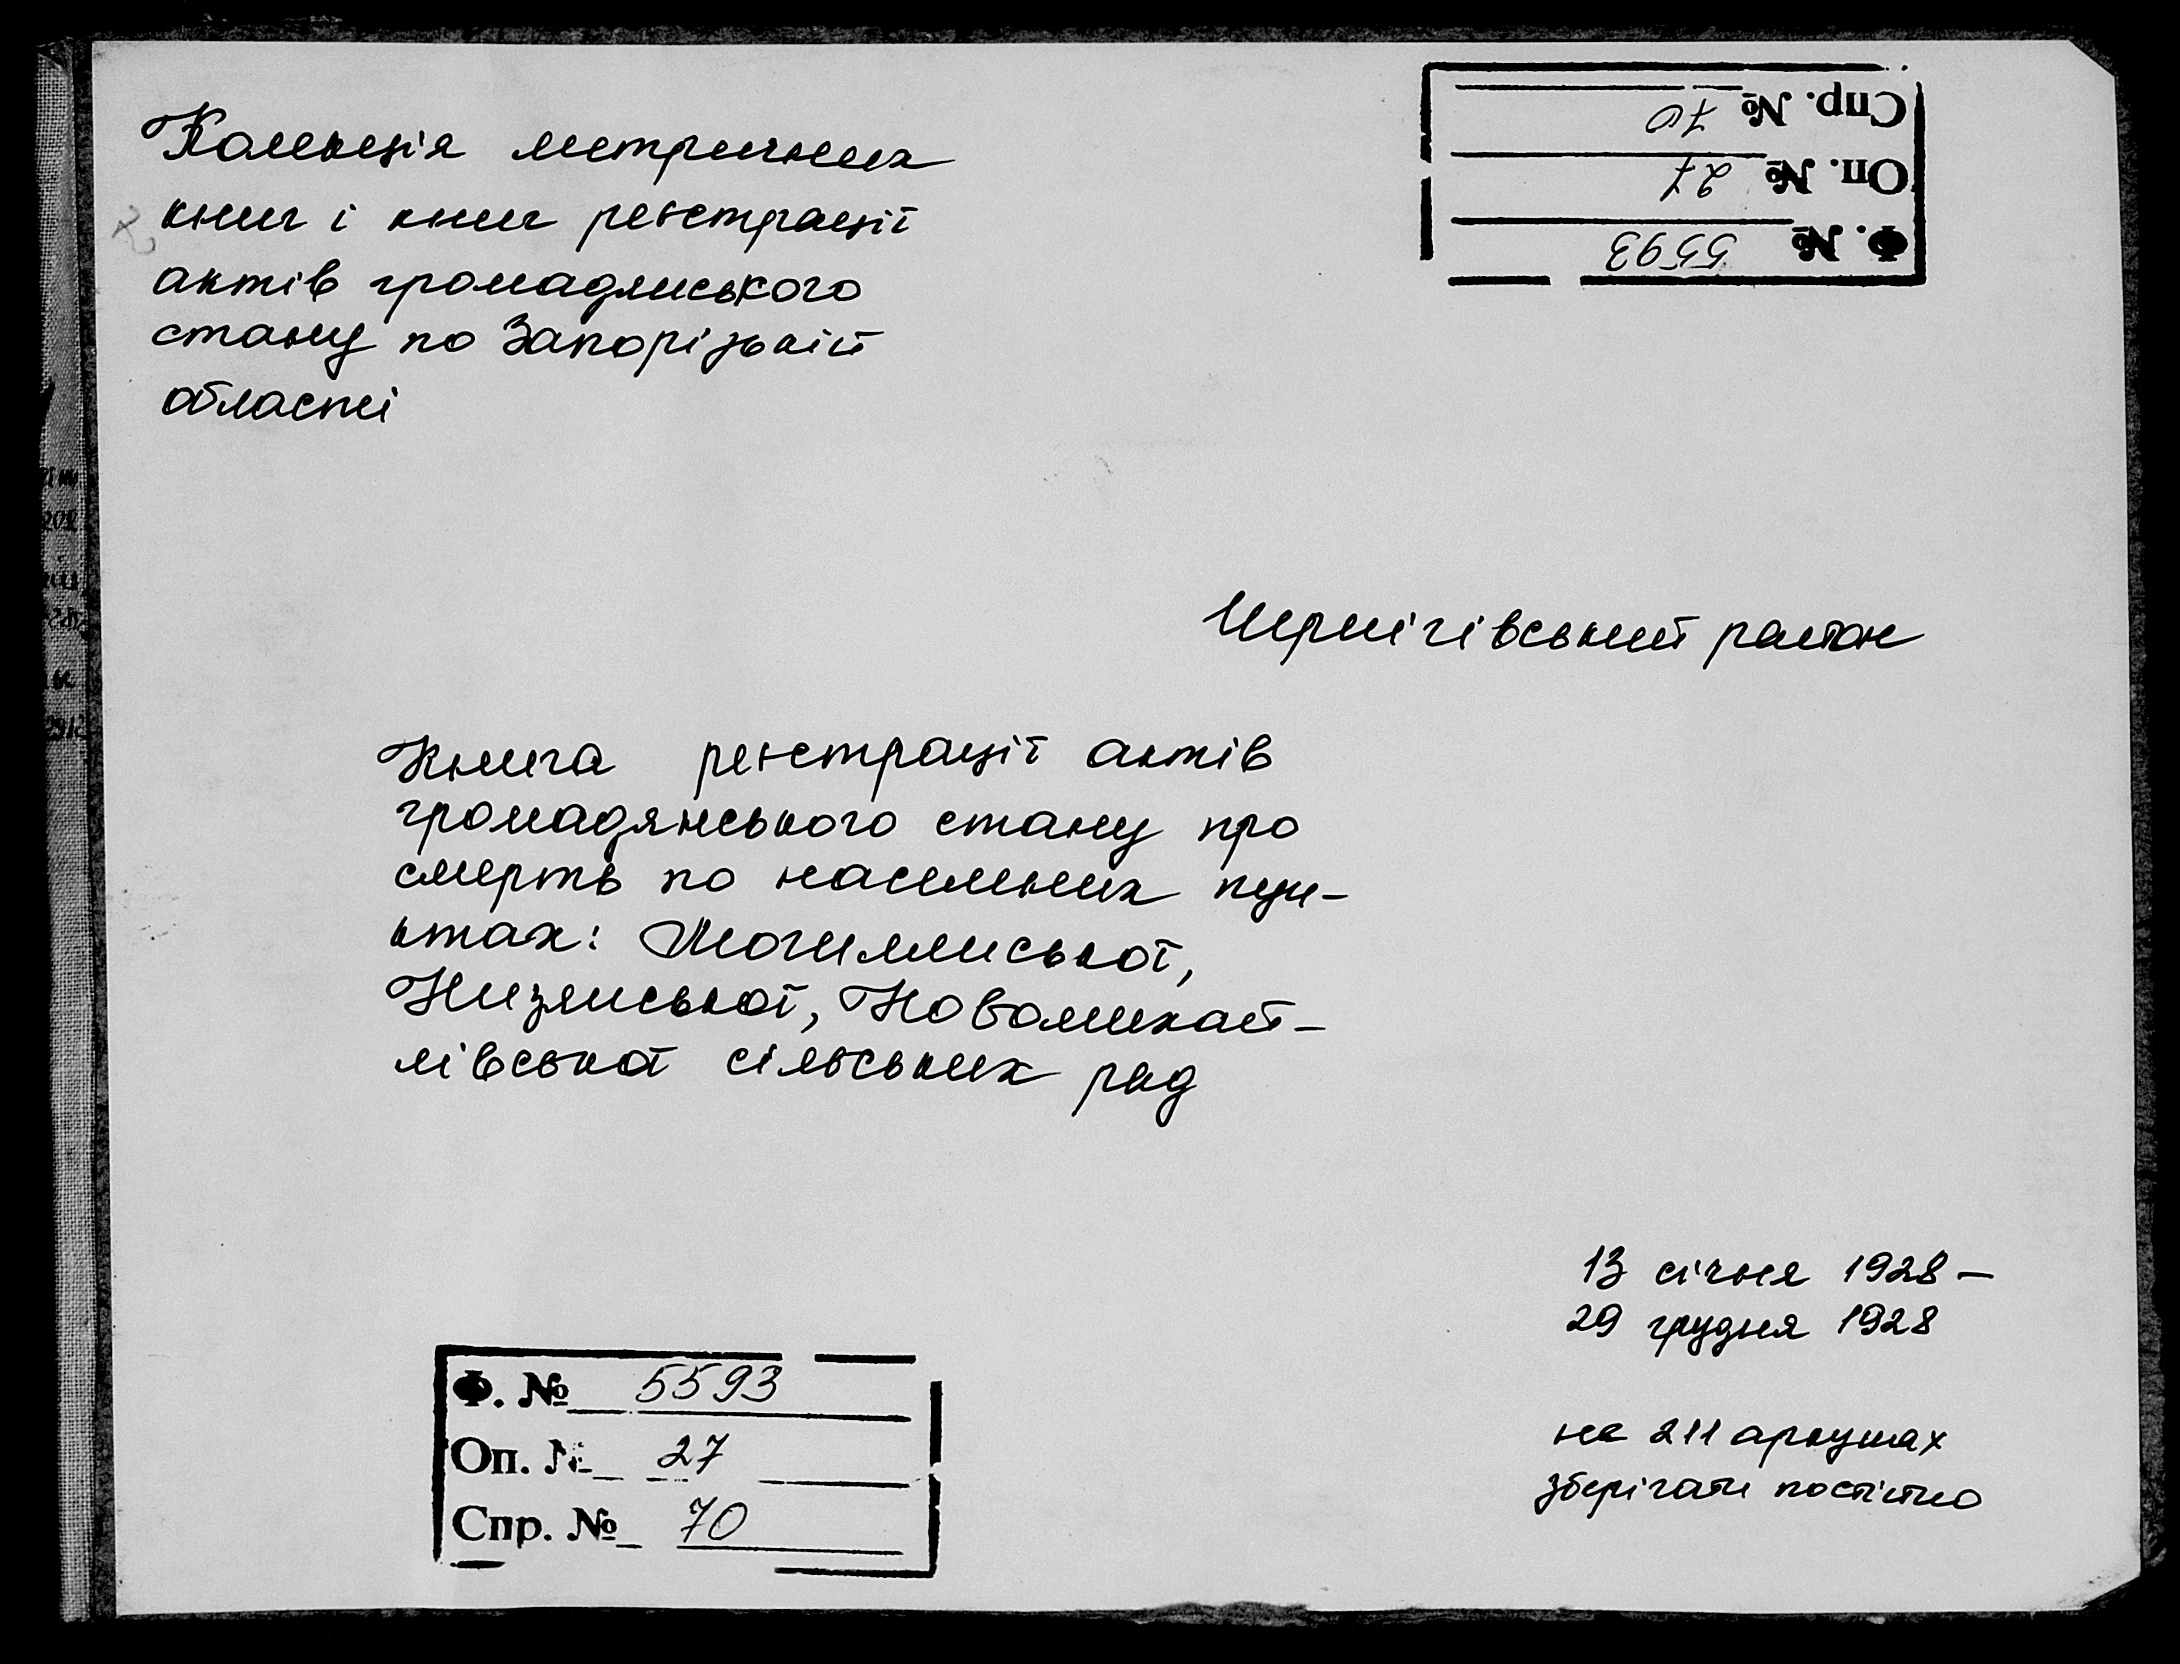 Колекція метричних
книг і книг реєстрації
актів громадянського
стану по Запорізькій
області
Спр. № 70
Оп. № 27
Ф. № 5593
Чернігівський район
Книга реєстрації актів
громадянського стану про
смерть по населених пун-
ктах: Могилянської,
Низянської, Новомихай-
лівської сільських рад
13 січня 1928 –
29 грудня 1928
на 211 аркушах
зберігати постійно
Ф. № 5593
Оп. № 27
Спр. № 70